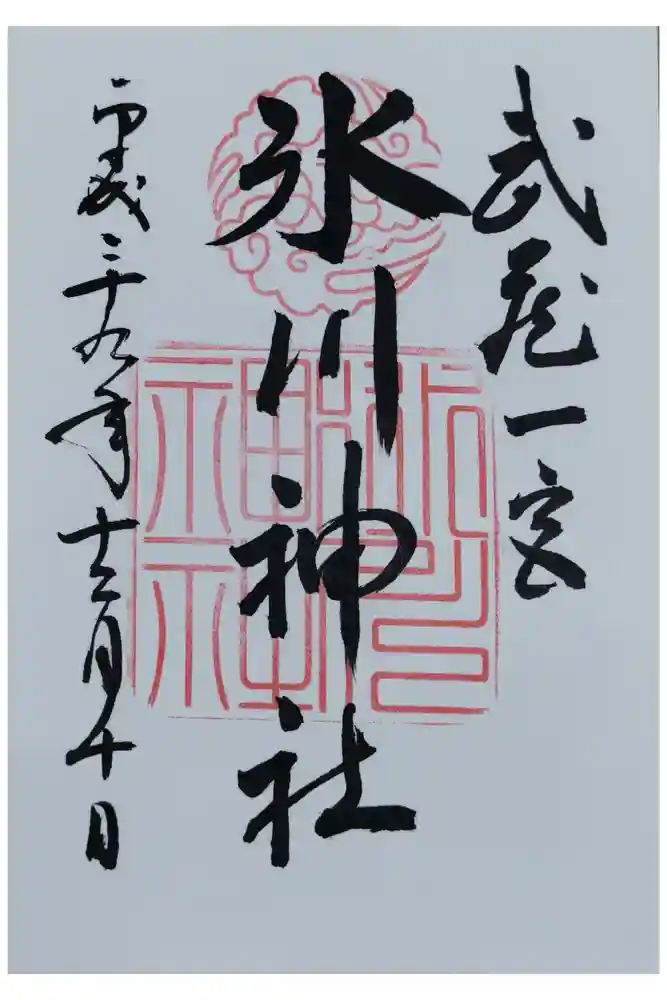 武蔵一宮
氷川神社
平成二十九年十二月十日
氷川
神社